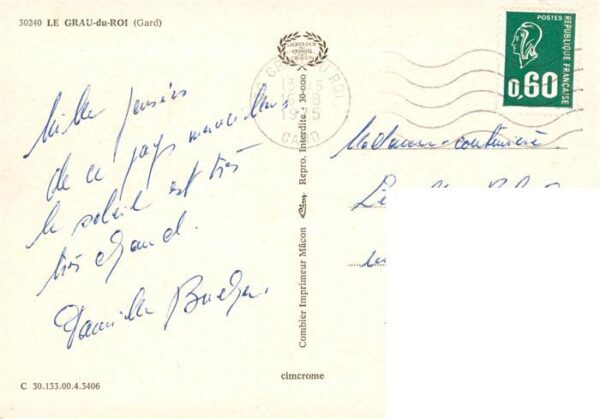 30240 LE GRAU-du-ROI (Gard)
Mille pensées
de ce pays merveilleux
le soleil est très
très chaud.
Famille
C 30.133.00.4.3406
Combier Imprimeur Mâcon Cim Repro. Interdite - 30-000
cimcrome
GRAU ROI
1975
GARD
POSTES
0,60
REPUBLIQUE FRANÇAISE
Madame